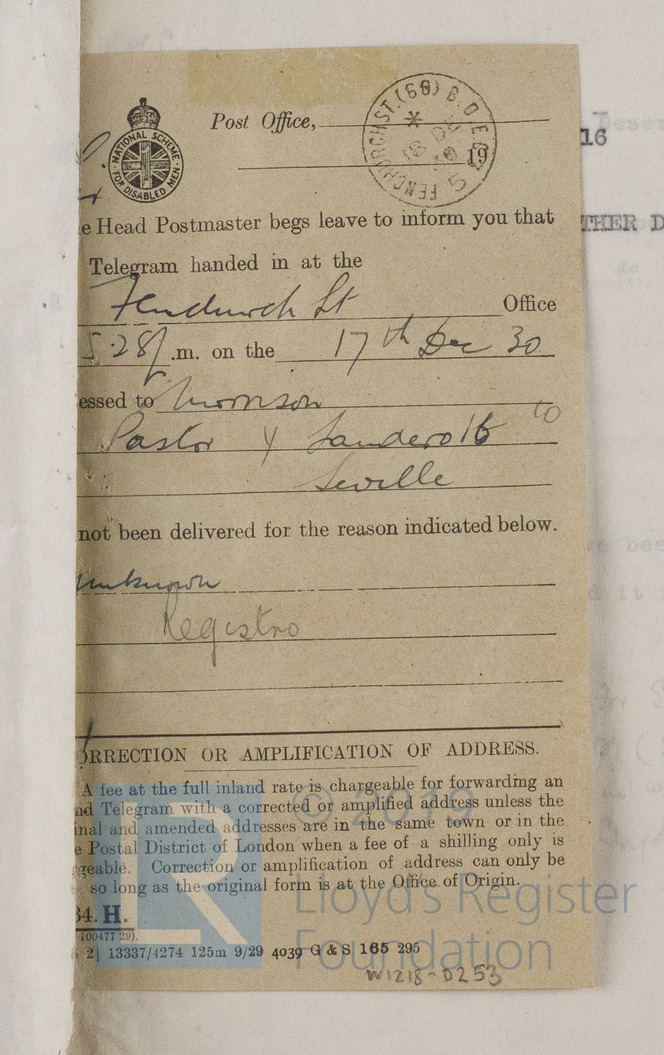 NATIONAL SCHEME
FOR DISABLED MEN
Post Office,
FENCHURCH ST. (68) B.O. E.C.
19
e Head Postmaster begs leave to inform you that
Telegram handed in at the
Fenchurch St Office
5.28 .m. on the 17th Dec 30
essed to Morrison
Pastor y Landero 16
Seville
not been delivered for the reason indicated below.
unknown
Registro
ORRECTION OR AMPLIFICATION OF ADDRESS.
A fee at the full inland rate is chargeable for forwarding an
nd Telegram with a corrected or amplified address unless the
inal and amended addresses are in the same town or in the
e Postal District of London when a fee of a shilling only is
rgeable. Correction or amplification of address can only be
so long as the original form is at the Office of Origin.
34. H.
100477 29).
2| 13337/4274 125m 9/29 4039 G & S 165 295
W1218-0253
16
THER D
© 2019
Lloyd's Register
Foundation
LR